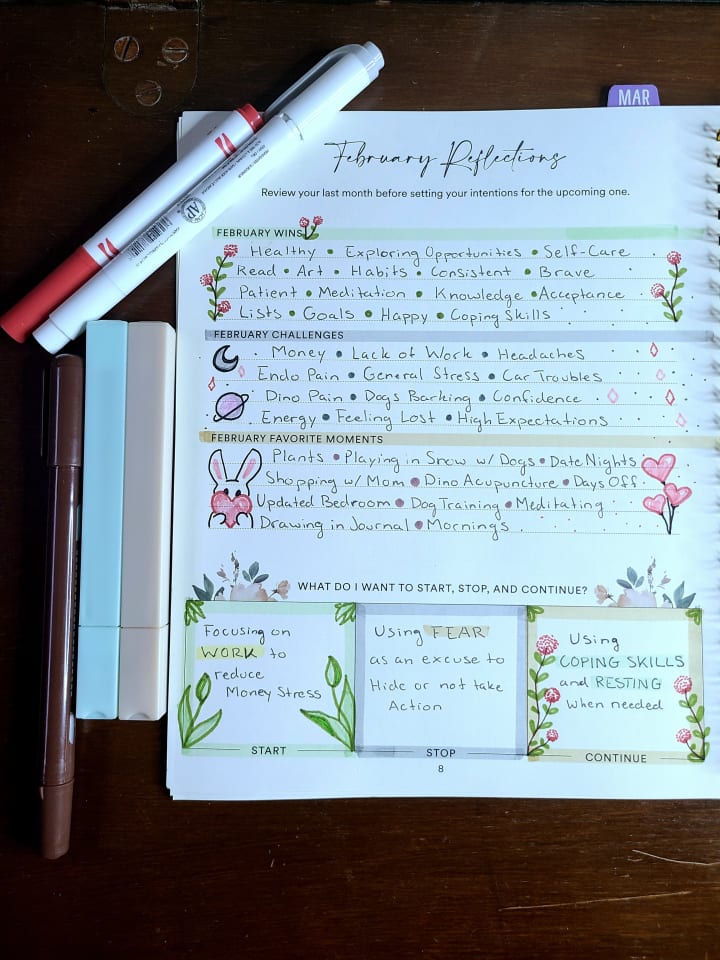 MAR
February Reflections
Review your last month before setting your intentions for the upcoming one.
FEBRUARY WINS
Healthy • Exploring Opportunities • Self-Care
Read • Art • Habits • Consistent • Brave
Patient • Meditation • Knowledge • Acceptance
Lists • Goals • Happy • Coping Skills
FEBRUARY CHALLENGES
Money • Lack of Work • Headaches
Endo Pain • General Stress • Car Troubles
Dino Pain • Dogs Barking • Confidence
Energy • Feeling Lost • High Expectations
FEBRUARY FAVORITE MOMENTS
Plants • Playing in Snow w/ Dogs • Date Nights
Shopping w/ Mom • Dino Acupuncture • Days Off
Updated Bedroom • Dog Training • Meditating
Drawing in Journal • Mornings
WHAT DO I WANT TO START, STOP, AND CONTINUE?
Focusing on
WORK to
reduce
Money Stress
START
Using FEAR
as an excuse to
Hide or not take
Action
STOP
Using
COPING SKILLS
and RESTING
when needed
CONTINUE
8
AP